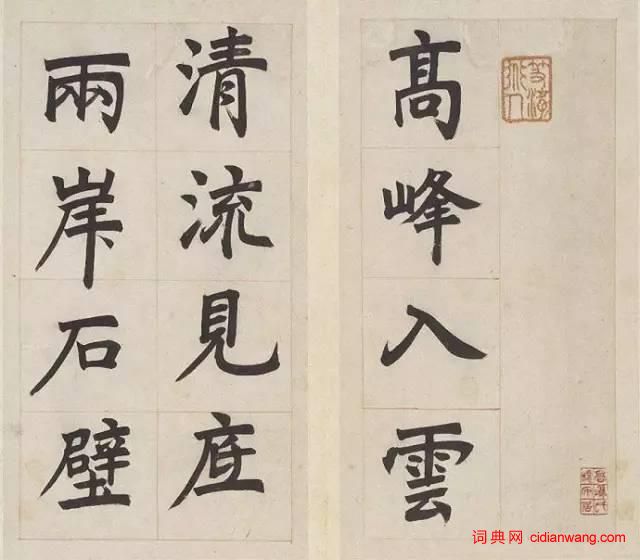 高峰入雲
清流見底
兩岸石壁
词典网 cidianwang.com